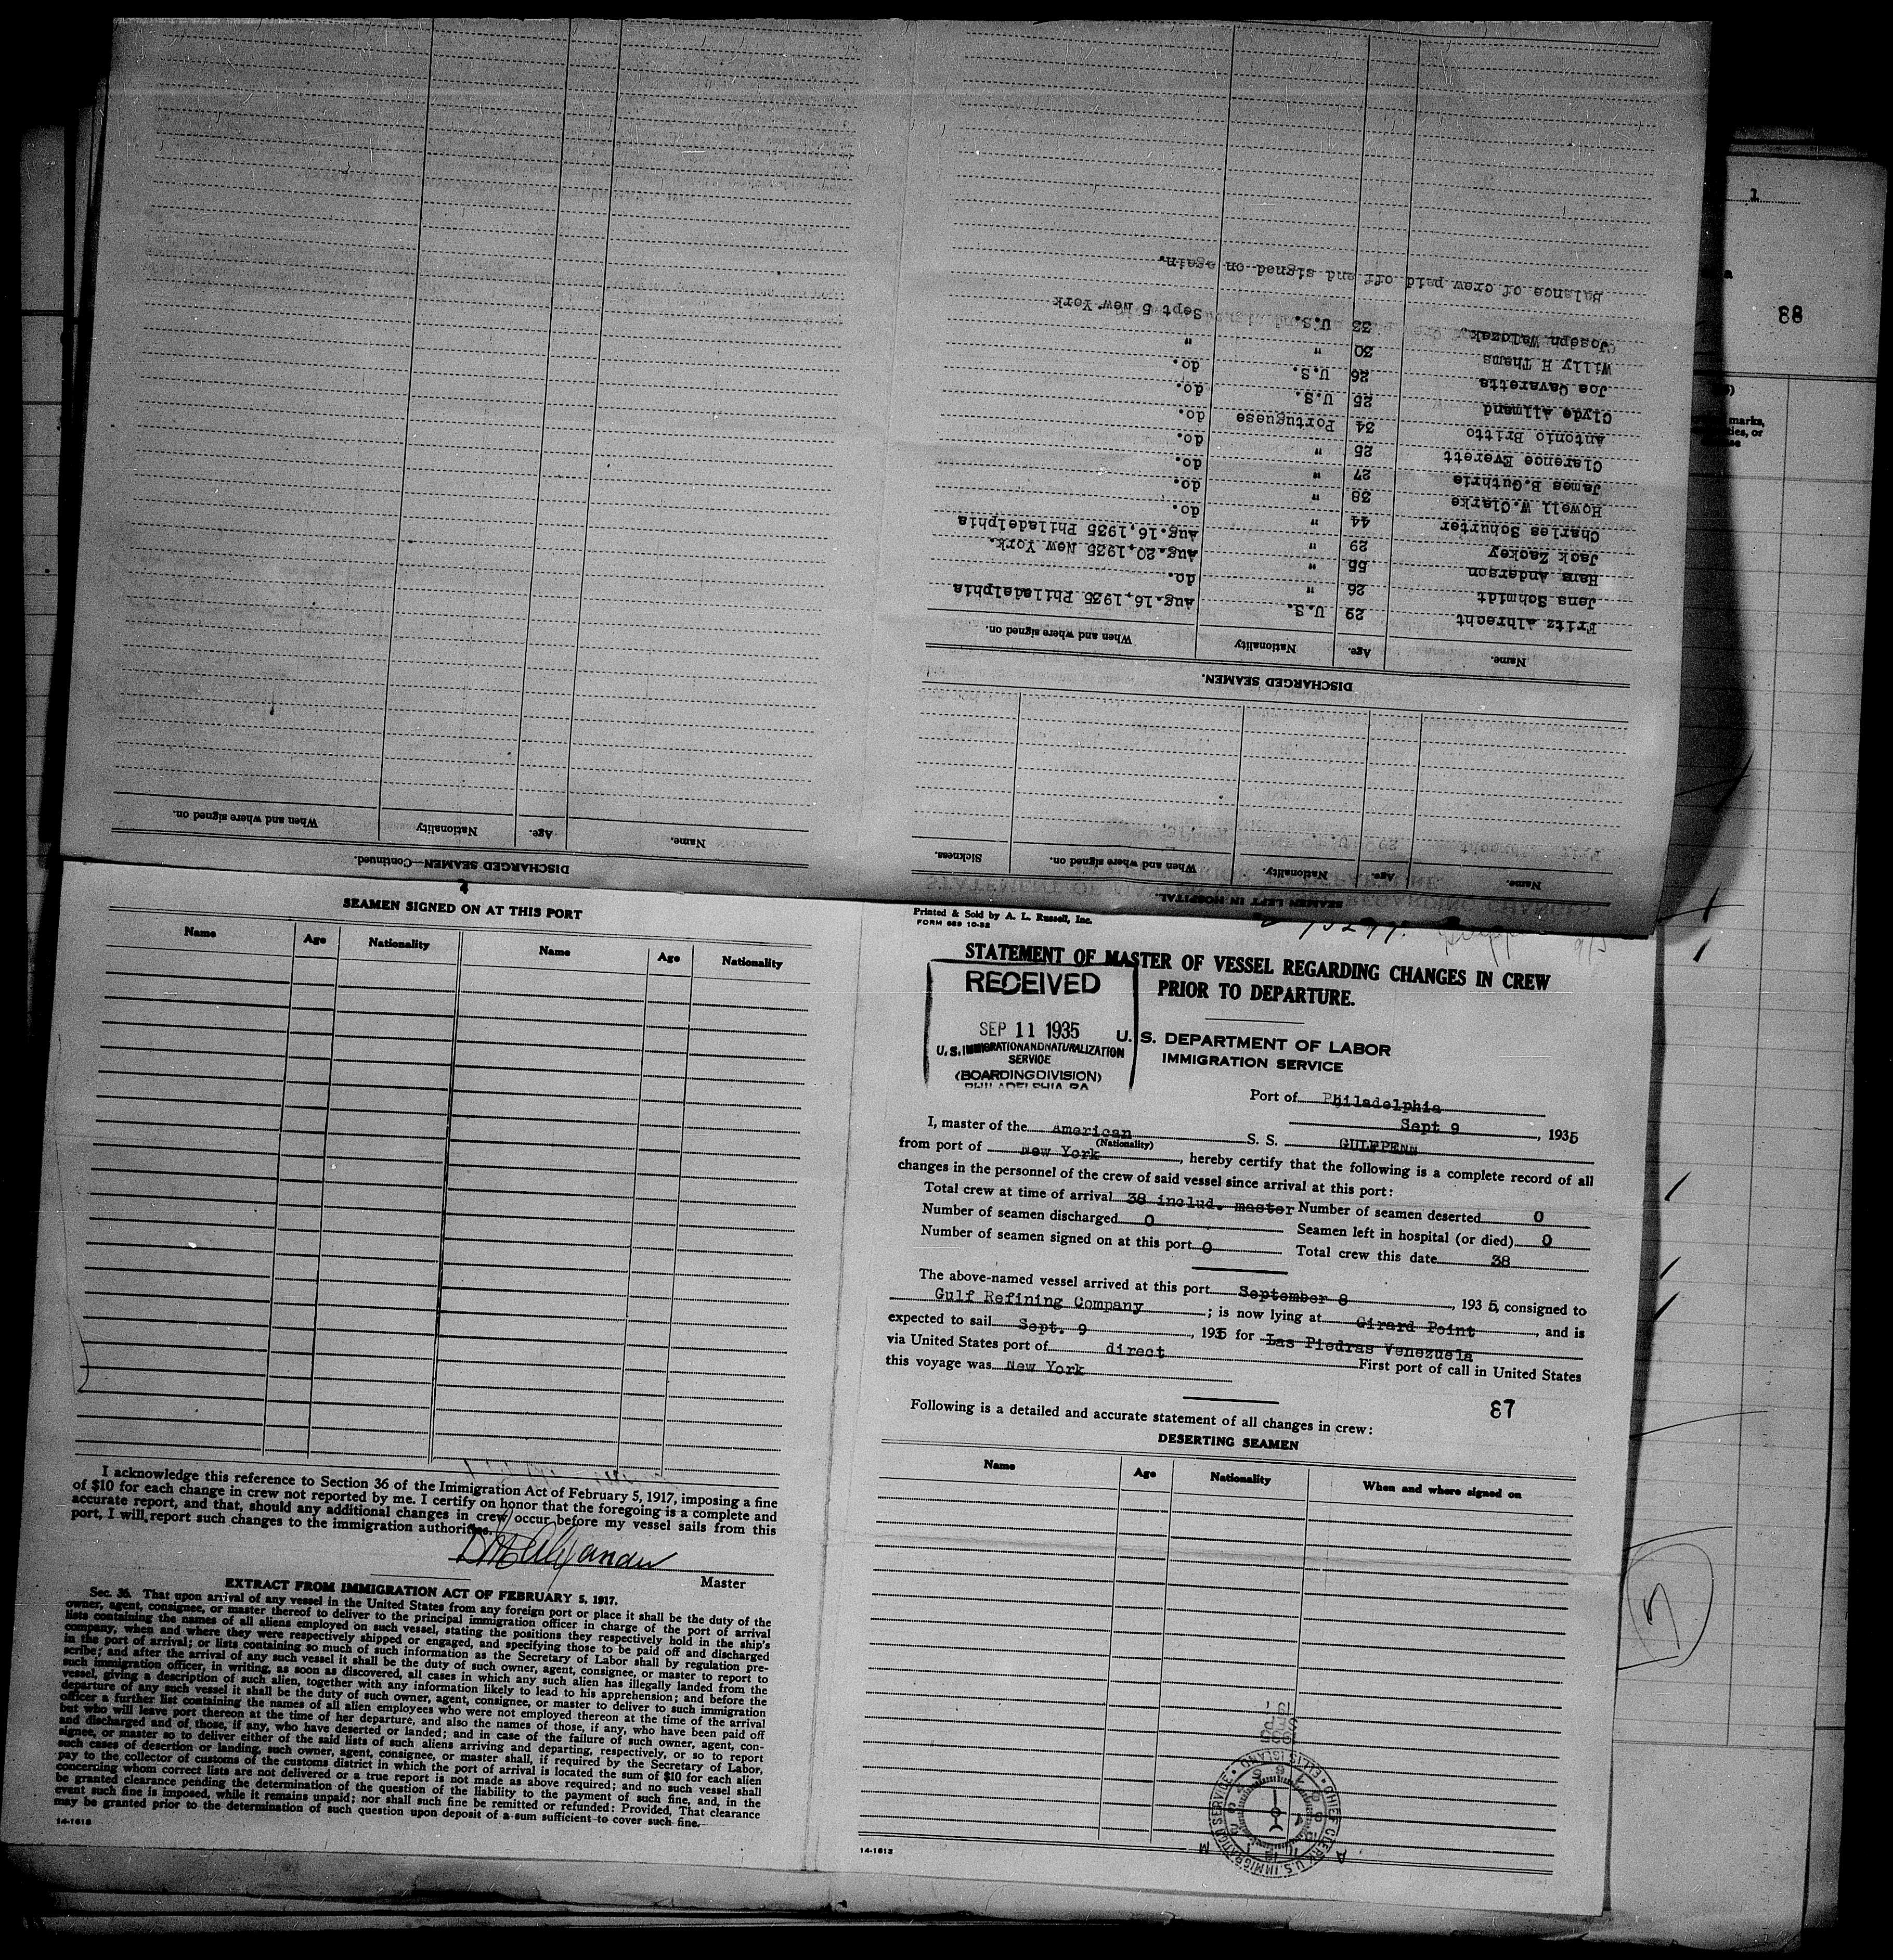 Balance of crew paid off and signed on again.
Joseph Walczak, 33 U.S. Sept 5 New York
Willy H Thams 30 " "
Joe Cavaretta 26 U.S. do.
Clyde Allmand 25 U.S. do.
Antonio Britto 34 Portuguese do.
Clarence Everett 25 " do.
James B.Guthrie 27 " do.
Howell W.Clarke 38 " do.
Charles Schurter 44 " do.
Jack Zackey 29 " Aug.16,1935 Philadelphia
Hans Anderson 55 " Aug.20,1935 New York.
Jens Schmidt 26 " do.
Fritz Albrecht 29 U.S. Aug.16,1935 Philadelphia
Name. Age. Nationality When and where signed on.
DISCHARGED SEAMEN.
Name. Age. Nationality. When and where signed on. Sickness.
SEAMEN LEFT IN HOSPITAL.
Name. Age. Nationality When and where signed on.
DISCHARGED SEAMEN—Continued.
1
88
marks,
ties, or
SEAMEN SIGNED ON AT THIS PORT
Name Age Nationality Name Age Nationality
I acknowledge this reference to Section 36 of the Immigration Act of February 5, 1917, imposing a fine
of $10 for each change in crew not reported by me. I certify on honor that the foregoing is a complete and
accurate report, and that, should any additional changes in crew occur before my vessel sails from this
port, I will report such changes to the immigration authorities.
Master
EXTRACT FROM IMMIGRATION ACT OF FEBRUARY 5, 1917.
Sec. 36. That upon arrival of any vessel in the United States from any foreign port or place it shall be the duty of the
owner, agent, consignee, or master thereof to deliver to the principal immigration officer in charge of the port of arrival
lists containing the names of all aliens employed on such vessel, stating the positions they respectively hold in the ship's
company, when and where they were respectively shipped or engaged, and specifying those to be paid off and discharged
in the port of arrival; or lists containing so much of such information as the Secretary of Labor shall by regulation pre-
scribe; and after the arrival of any such vessel it shall be the duty of such owner, agent, consignee, or master to report to
such immigration officer, in writing, as soon as discovered, all cases in which any such alien has illegally landed from the
vessel, giving a description of such alien, together with any information likely to lead to his apprehension; and before the
departure of any such vessel it shall be the duty of such owner, agent, consignee, or master to deliver to such immigration
officer a further list containing the names of all alien employees who were not employed thereon at the time of the arrival
but who will leave port thereon at the time of her departure, and also the names of those, if any, who have been paid off
and discharged and of those, if any, who have deserted or landed; and in case of the failure of such owner, agent, con-
signee, or master so to deliver either of the said lists of such aliens arriving and departing, respectively, or so to report
such cases of desertion or landing, such owner, agent, consignee, or master shall, if required by the Secretary of Labor,
pay to the collector of customs of the customs district in which the port of arrival is located the sum of $10 for each alien
concerning whom correct lists are not delivered or a true report is not made as above required; and no such vessel shall
be granted clearance pending the determination of the question of the liability to the payment of such fine, and, in the
event such fine is imposed, while it remains unpaid; nor shall such fine be remitted or refunded: Provided, That clearance
may be granted prior to the determination of such question upon deposit of a sum sufficient to cover such fine.
14-1613
Printed & Sold by A. L. Russell, Inc.
FORM 689 10-32
STATEMENT OF MASTER OF VESSEL REGARDING CHANGES IN CREW
PRIOR TO DEPARTURE.
RECEIVED
SEP 11 1935
U.S. IMMIGRATION AND NATURALIZATION
SERVICE
(BOARDING DIVISION)
PHILADELPHIA PA
U. S. DEPARTMENT OF LABOR
IMMIGRATION SERVICE
Port of Philadelphia
Sept 9, 1935
I, master of the American S. S. GULFPENN
(Nationality)
from port of New York, hereby certify that the following is a complete record of all
changes in the personnel of the crew of said vessel since arrival at this port:
Total crew at time of arrival 38 includ. master Number of seamen deserted 0
Number of seamen discharged 0 Seamen left in hospital (or died) 0
Number of seamen signed on at this port 0 Total crew this date 38
The above-named vessel arrived at this port September 8, 1935, consigned to
Gulf Refining Company; is now lying at Girard Point, and is
expected to sail Sept. 9, 1935 for Las Piedras Venezuela
via United States port of direct First port of call in United States
this voyage was New York
87
Following is a detailed and accurate statement of all changes in crew:
DESERTING SEAMEN
Name Age Nationality When and where signed on
CHIEF CLERK U.S. IMMIGRATION SERVICE • ELLIS ISLAND •
14-1613